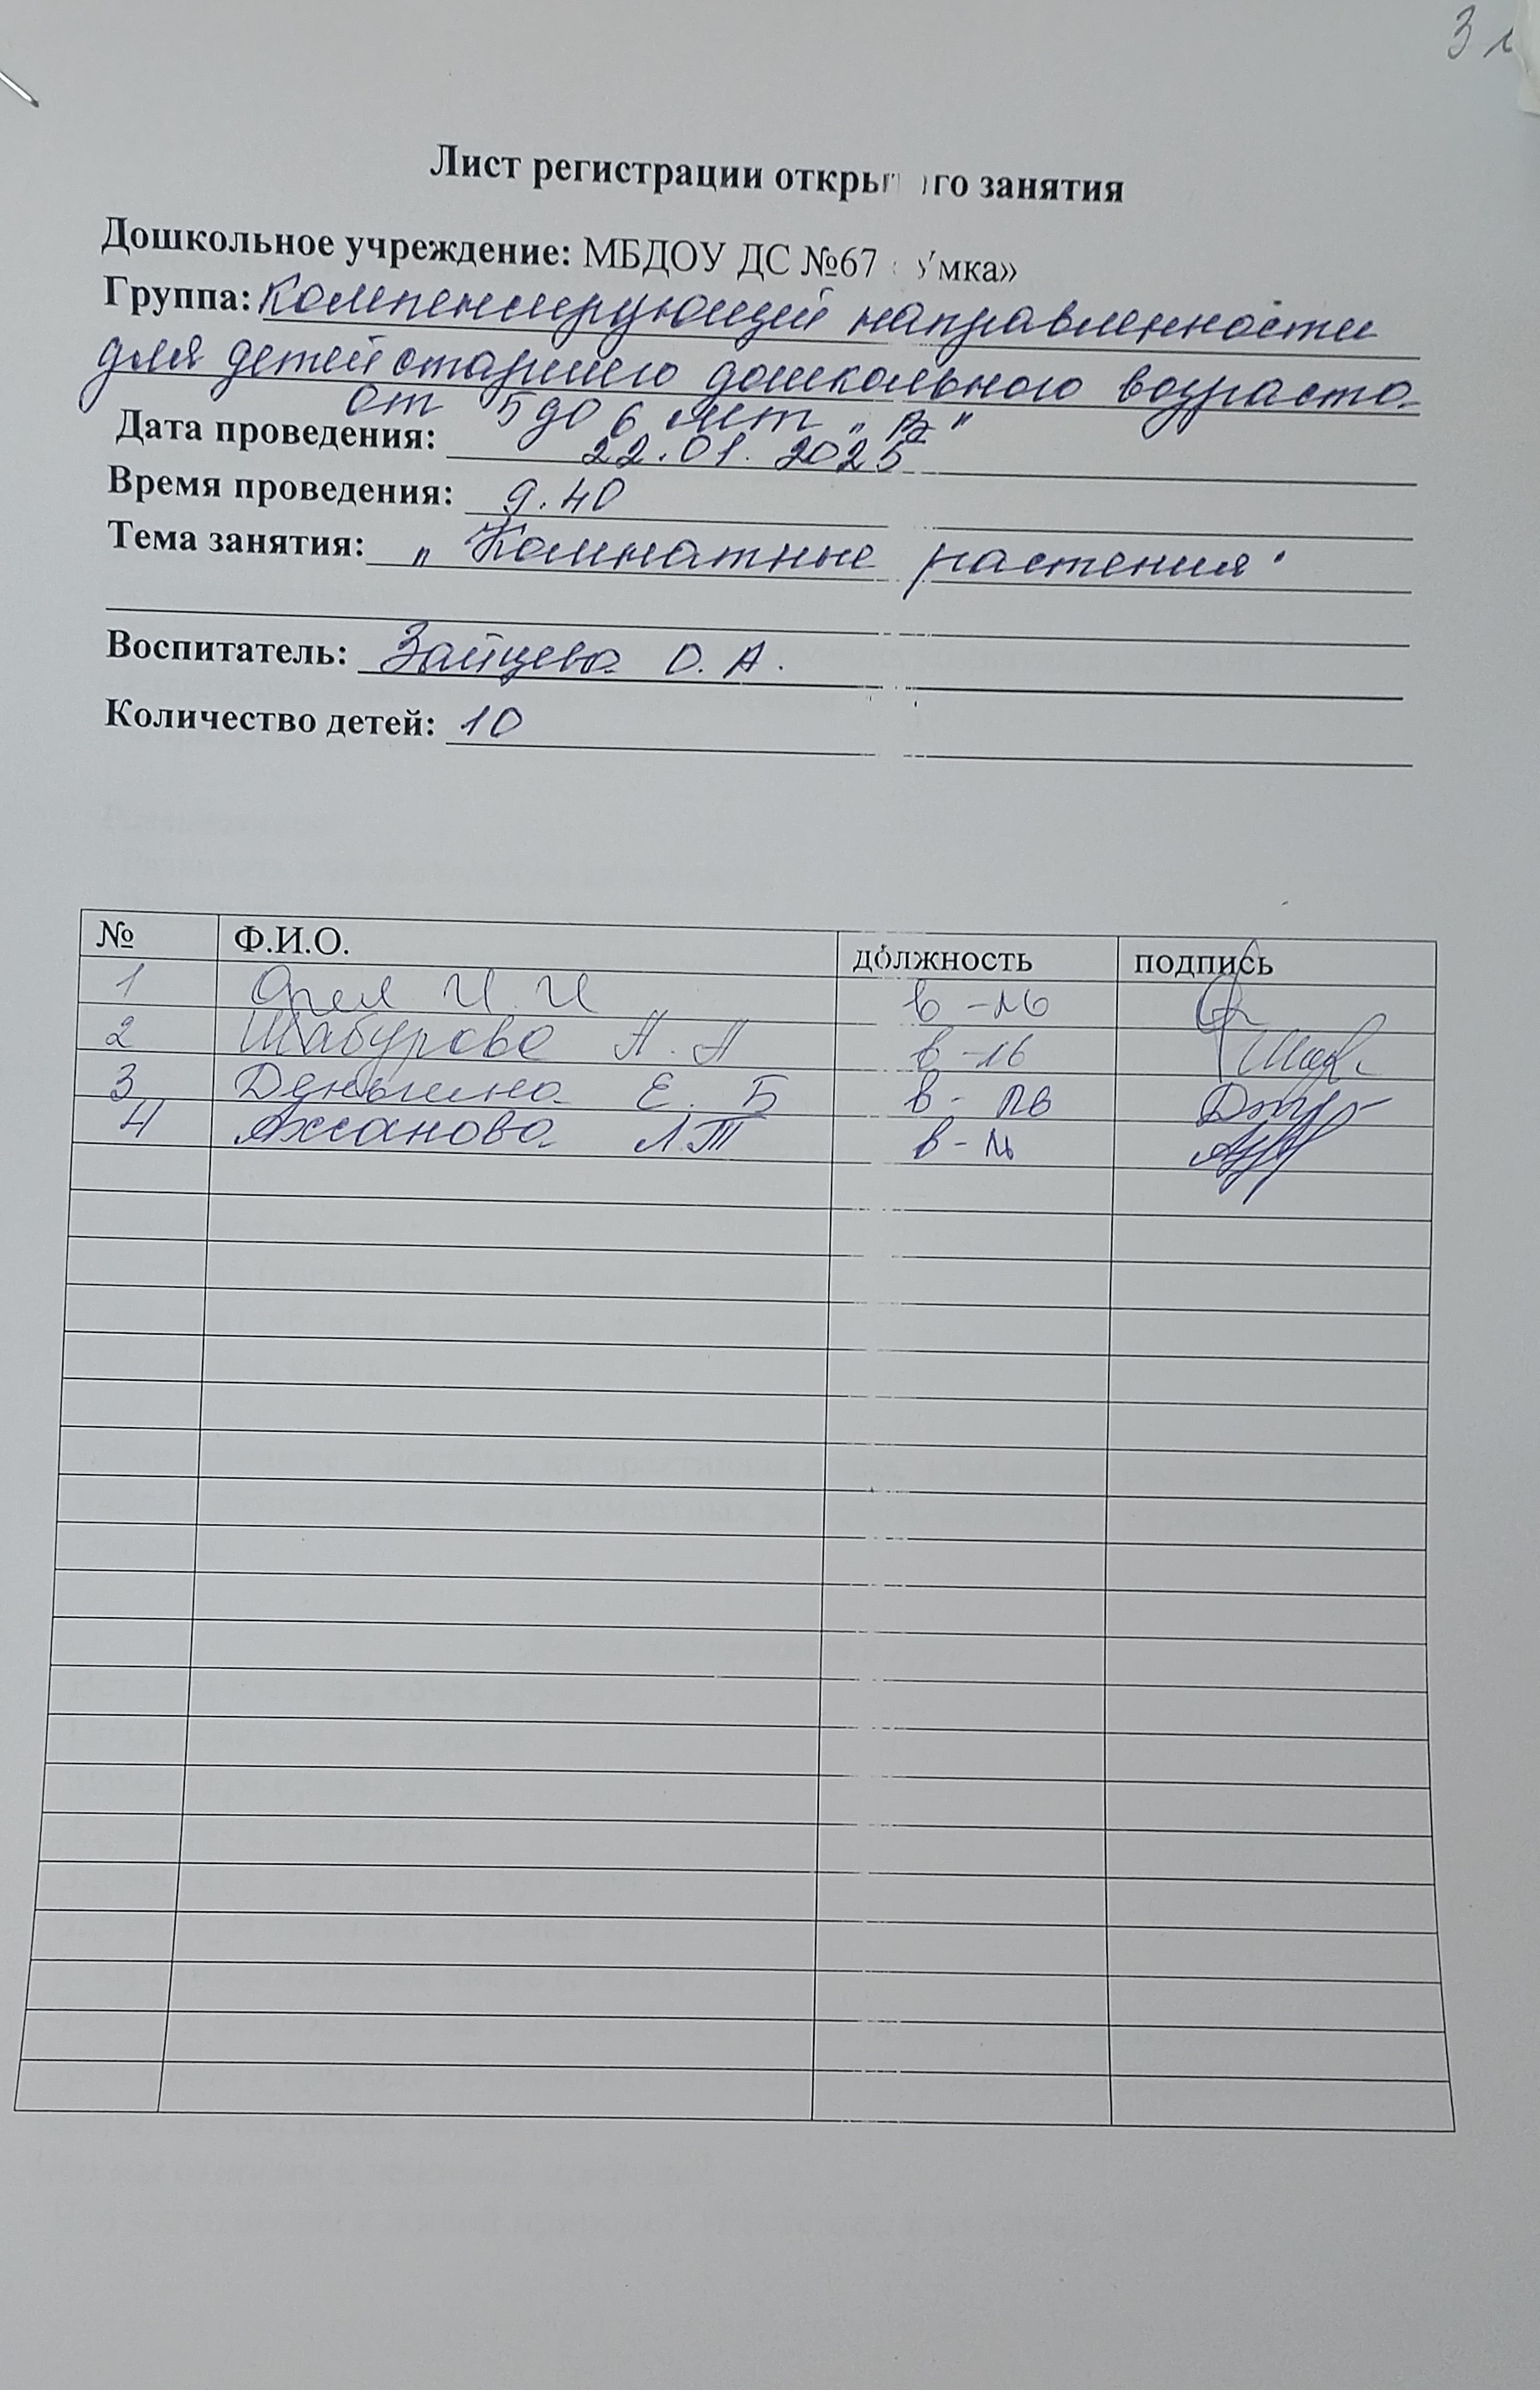 3 л
Лист регистрации открытого занятия
Дошкольное учреждение: МБДОУ ДС №67 «Умка»
Группа: Компенсирующей направленности
для детей старшего дошкольного возраста
от 5 до 6 лет „В"
Дата проведения: 22.01.2025
Время проведения: 9.40
Тема занятия: „Комнатные растения"
Воспитатель: Зайцева О.А.
Количество детей: 10
№ Ф.И.О. должность подпись
1 Орел И.И в-ль
2 Шабурова А.А в-ль Шаб
3 Деньгина Е.Б в-ль
4 Ахсанова Л.Т в-ль